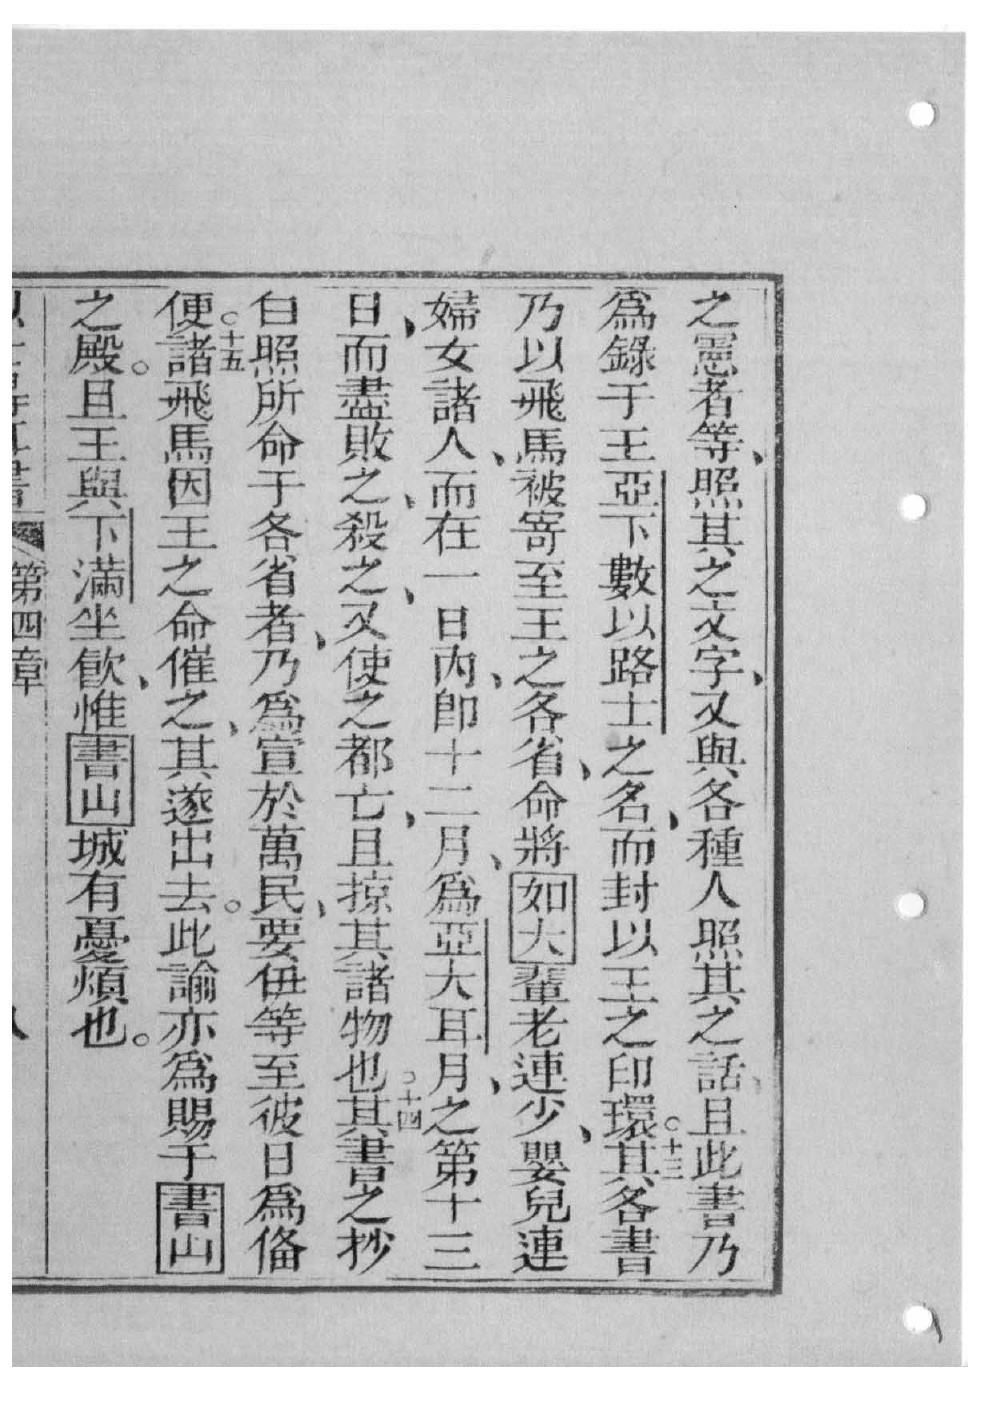 之憲者等、照其之文字、又與各種人照其之話、且此書乃
爲錄于王亞下數以路士之名、而封以王之印環。○十三其各書
乃以飛馬被寄至王之各省、命將如大輩老連少、嬰兒連
婦女諸人、而在一日內、卽十二月、爲亞大耳月、之第十三
日、而盡敗之、殺之、又使之都亡、且掠其諸物也○十四其書之抄
白照所命于各省者、乃爲宣於萬民、要伊等至彼日爲俻
便○十五諸飛馬因王之命催之、其遂出去。此諭亦爲賜于書山
之殿。且王與下滿坐飮、惟書山城有憂煩也。
第四章